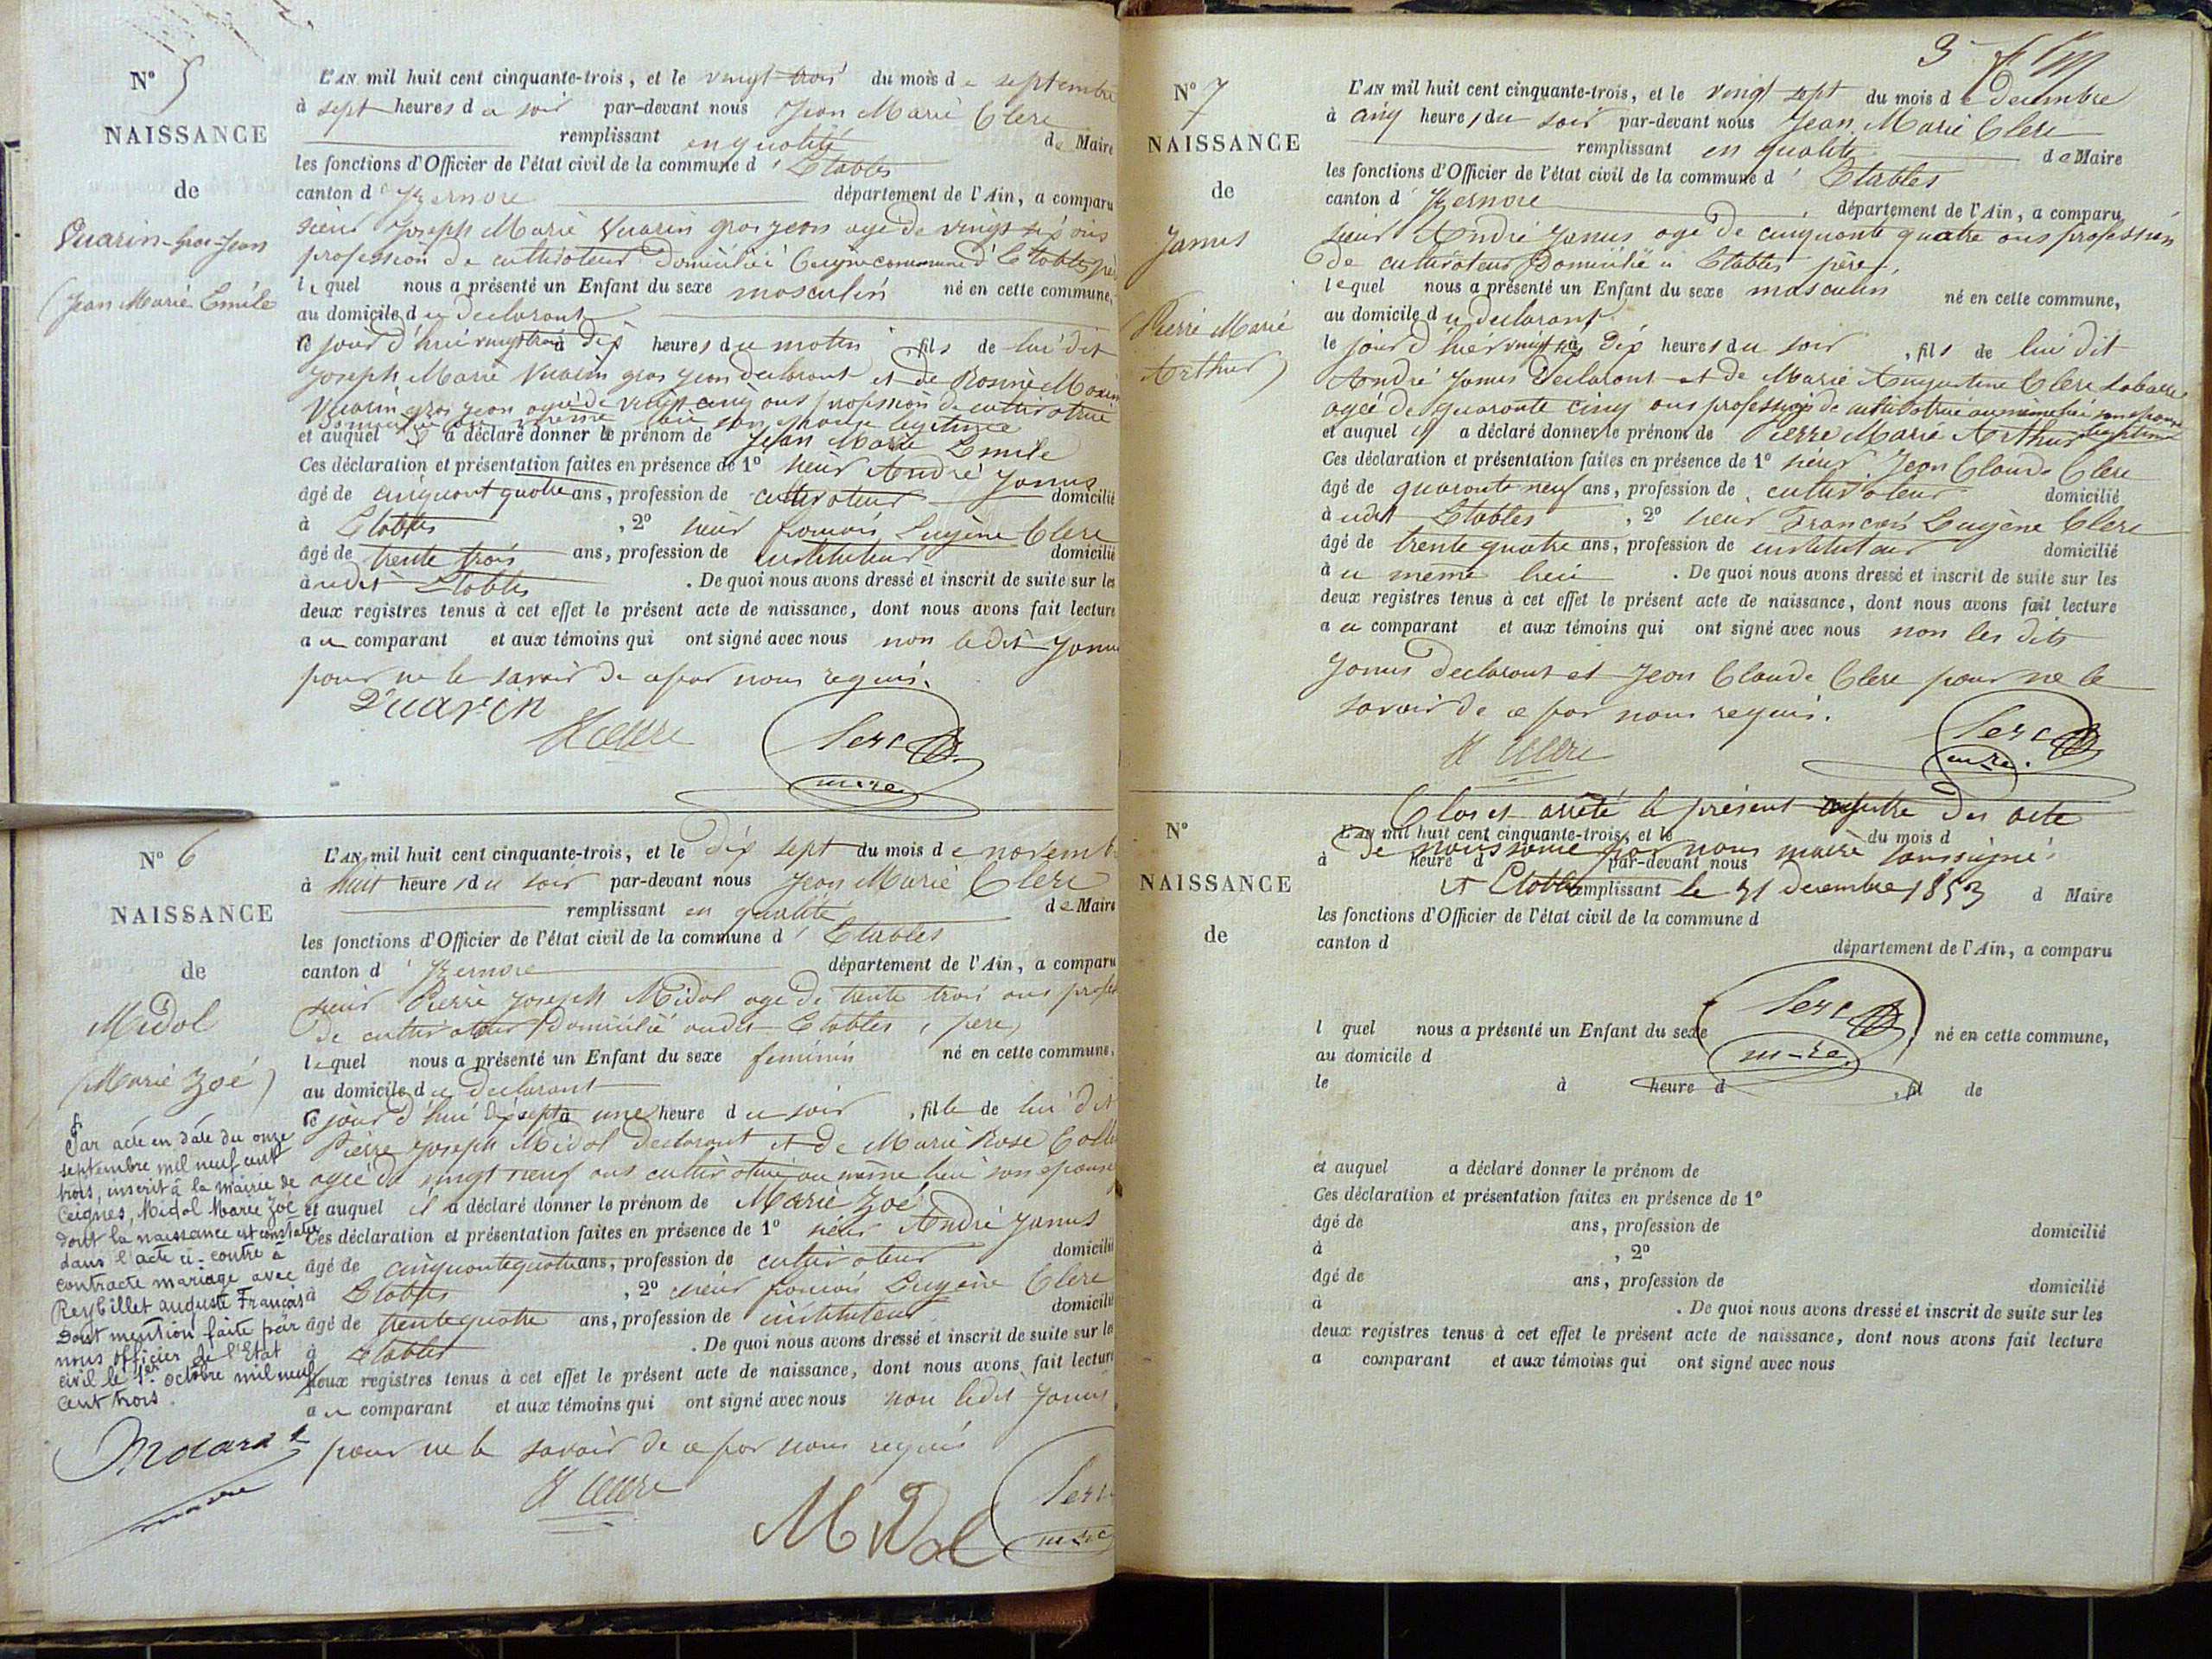 N° 5
NAISSANCE
de
Vuarin-Gros-Jean
(Jean Marie Emile
L'AN mil huit cent cinquante-trois, et le vingt trois du mois de septembre
à sept heures du soir par-devant nous Jean Marie Clerc
remplissant en qualité de Maire
les fonctions d'Officier de l'état civil de la commune d'Etables
canton d'Izernore département de l'Ain, a comparu
sieur Joseph Marie Vuarin gros jean agé de vingt six ans
profession de cultivateur domicilié à Ceignes commune d'Etables père
lequel nous a présenté un Enfant du sexe masculin né en cette commune,
au domicile du declarant
ce jourd'hui vingt trois à dix heures du matin, fils de lui dit
Joseph Marie Vuarin gros jean declarant et de Rosine
Vuarin gros jean agée de vingt cinq ans profession de cultivatrice
domiciliée au même lieu son épouse legitime
et auquel il a déclaré donner le prénom de Jean Marie Emile
Ces déclaration et présentation faites en présence de 1° sieur André Janus
âgé de cinquant quatre ans, profession de cultivateur domicilié
à Etables, 2° sieur francois Eugène Clerc
âgé de trente trois ans, profession de instituteur domicilié
à udit Etables. De quoi nous avons dressé et inscrit de suite sur les
deux registres tenus à cet effet le présent acte de naissance, dont nous avons fait lecture
au comparant et aux témoins qui ont signé avec nous non ledit Janus
pour ne le savoir de ce par nous requis.
Vuarin
Clerc
maire
N° 6
NAISSANCE
de
Midol
(Marie Zoé)
Par acte en date du onze
septembre mil neuf cent
trois, inscrit à la mairie de
Ceignes, Midol Marie Zoé
dont la naissance est constatée
dans l'acte ci-contre à
contracté mariage avec
Reybillet auguste Français
Dont mention faite par
nous officier de l'Etat
civil le 1er octobre mil neuf
cent trois.
maire
L'AN mil huit cent cinquante-trois, et le dix sept du mois de novembre
à huit heures du soir par-devant nous Jean Marie Clerc
remplissant en qualité de Maire
les fonctions d'Officier de l'état civil de la commune d'Etables
canton d'Izernore département de l'Ain, a comparu
sieur Pierre Joseph Midol age de trente trois ans profes
de cultivateur domicilié audit Etables, père,
lequel nous a présenté un Enfant du sexe feminin né en cette commune,
au domicile du declarant
ce jourd'hui dix sept à une heure du soir, fille de lui dit
Pierre Joseph Midol declarant et de Marie Rose
agée de vingt neuf ans cultivatrice au même lieu son epouse
et auquel il a déclaré donner le prénom de Marie Zoé
Ces déclaration et présentation faites en présence de 1° sieur André Janus
âgé de cinquante quatre ans, profession de cultivateur domicilié
à Etables, 2° sieur francois Eugène Clerc
âgé de trente quatre ans, profession de instituteur domicilié
à Etables. De quoi nous avons dressé et inscrit de suite sur les
deux registres tenus à cet effet le présent acte de naissance, dont nous avons fait lecture
au comparant et aux témoins qui ont signé avec nous non ledit Janus
pour ne le savoir de ce par nous requis
Clerc
Midol
maire
3
N° 7
NAISSANCE
de
Janus
(Pierre Marie
Arthur)
L'AN mil huit cent cinquante-trois, et le vingt sept du mois de decembre
à cinq heures du soir par-devant nous Jean Marie Clerc
remplissant en qualité de Maire
les fonctions d'Officier de l'état civil de la commune d'Etables
canton d'Izernore département de l'Ain, a comparu
sieur André Janus agé de cinquante quatre ans profession
de cultivateur domicilié à Etables père,
lequel nous a présenté un Enfant du sexe masculin né en cette commune,
au domicile du declarant
le jour d'hier vingt six à dix heures du soir, fils de lui dit
André Janus declarant et de Marie Augustine Clerc
agée de quarante cinq ans profession de cultivatrice au même lieu son epouse legitime
et auquel il a déclaré donner le prénom de Pierre Marie Arthur
Ces déclaration et présentation faites en présence de 1° sieur Jean Claude Clerc
âgé de quarante neuf ans, profession de cultivateur domicilié
à udit Etables, 2° sieur Francois Eugène Clerc
âgé de trente quatre ans, profession de instituteur domicilié
au même lieu. De quoi nous avons dressé et inscrit de suite sur les
deux registres tenus à cet effet le présent acte de naissance, dont nous avons fait lecture
au comparant et aux témoins qui ont signé avec nous non les dits
Janus declarant et Jean Claude Clerc pour ne le
savoir de ce par nous requis.
Clerc
maire.
N°
NAISSANCE
de
Clos et arrêté le présent registre des acte
L'AN mil huit cent cinquante-trois, et le du mois d
de naissance par nous maire soussigné
à heure d par-devant nous
à Etables le 31 decembre 1853
remplissant d Maire
les fonctions d'Officier de l'état civil de la commune d
canton d département de l'Ain, a comparu
l quel nous a présenté un Enfant du sexe né en cette commune,
au domicile d
maire.
le à heure d , fil de
et auquel a déclaré donner le prénom de
Ces déclaration et présentation faites en présence de 1°
âgé de ans, profession de domicilié
à , 2°
âgé de ans, profession de domicilié
à . De quoi nous avons dressé et inscrit de suite sur les
deux registres tenus à cet effet le présent acte de naissance, dont nous avons fait lecture
a comparant et aux témoins qui ont signé avec nous